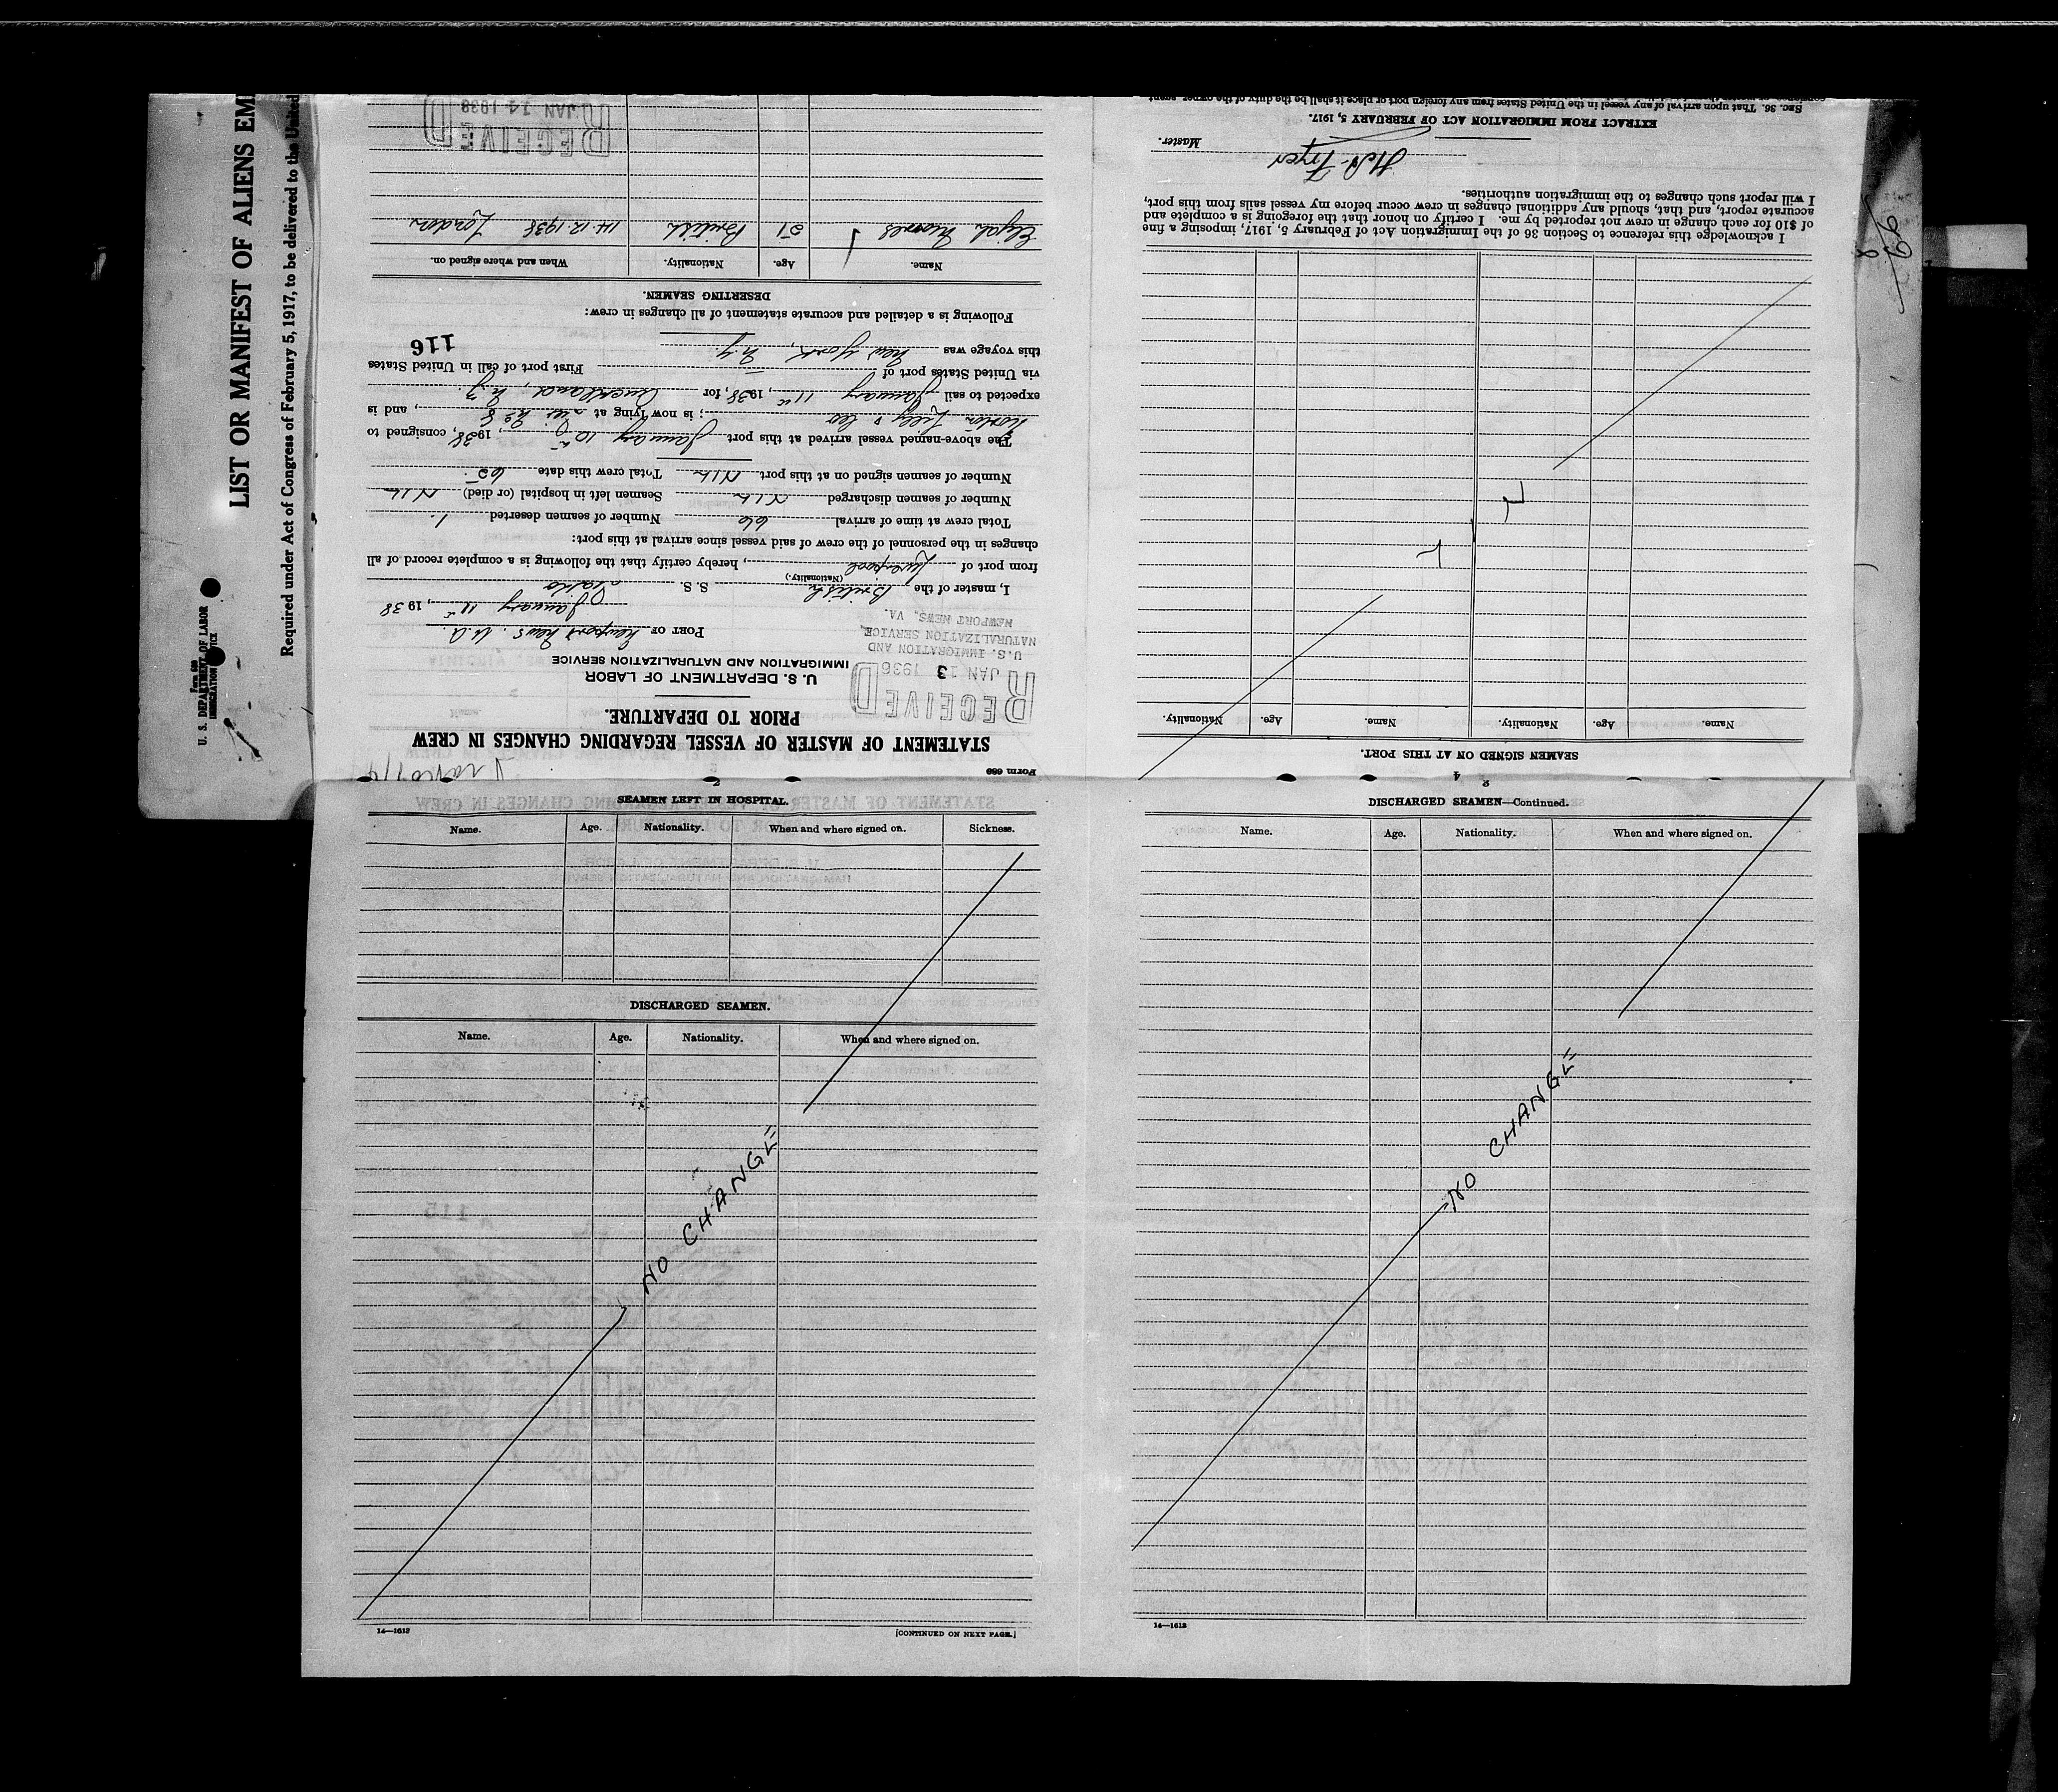 LIST OR MANIFEST OF ALIENS EM
Required under Act of Congress of February 5, 1917, to be delivered to the United
Form 680
U. S. DEPARTMENT OF LABOR
IMMIGRATION SERVICE
Form 689
STATEMENT OF MASTER OF VESSEL REGARDING CHANGES IN CREW
PRIOR TO DEPARTURE.
U. S. DEPARTMENT OF LABOR
IMMIGRATION AND NATURALIZATION SERVICE
RECEIVED
JAN 13 1938
U. S. IMMIGRATION AND
NATURALIZATION SERVICE,
NEWPORT NEWS, VA.
PORT OF Newport News. VA.
January 11th, 1938
I, master of the British S. S.
(Nationality.)
from port of Liverpool, hereby certify that the following is a complete record of all
changes in the personnel of the crew of said vessel since arrival at this port:
Total crew at time of arrival 66 Number of seamen deserted 1.
Number of seamen discharged NIL Seamen left in hospital (or died) NIL
Number of seamen signed on at this port NIL Total crew this date 65.
The above-named vessel arrived at this port January 10th, 1938, consigned to
Norton Lilly & Co; is now lying at Pier No 8, and is
expected to sail January 11th, 1938, for Auckland, N.Z.
via United States port of — First port of call in United States
this voyage was New York, N.Y
116
Following is a detailed and accurate statement of all changes in crew:
DESERTING SEAMEN.
Name. Age. Nationality. When and where signed on.
21 British 14.12.1938 London
RECEIVED
JAN 14 1938
4
SEAMEN SIGNED ON AT THIS PORT.
Name. Age. Nationality. Name. Age. Nationality.
I acknowledge this reference to Section 36 of the Immigration Act of February 5, 1917, imposing a fine
of $10 for each change in crew not reported by me. I certify on honor that the foregoing is a complete and
accurate report, and that, should any additional changes in crew occur before my vessel sails from this port,
I will report such changes to the immigration authorities.
Fryer
Master.
EXTRACT FROM IMMIGRATION ACT OF FEBRUARY 5, 1917.
SEC. 36. That upon arrival of any vessel in the United States from any foreign port or place it shall be the duty of the owner, agent,
2
SEAMEN LEFT IN HOSPITAL.
Name. Age. Nationality. When and where signed on. Sickness.
DISCHARGED SEAMEN.
Name. Age. Nationality. When and where signed on.
NO CHANGE
14—1613
[CONTINUED ON NEXT PAGE.]
3
DISCHARGED SEAMEN—Continued.
Name. Age. Nationality. When and where signed on.
NO CHANGE
14—1613